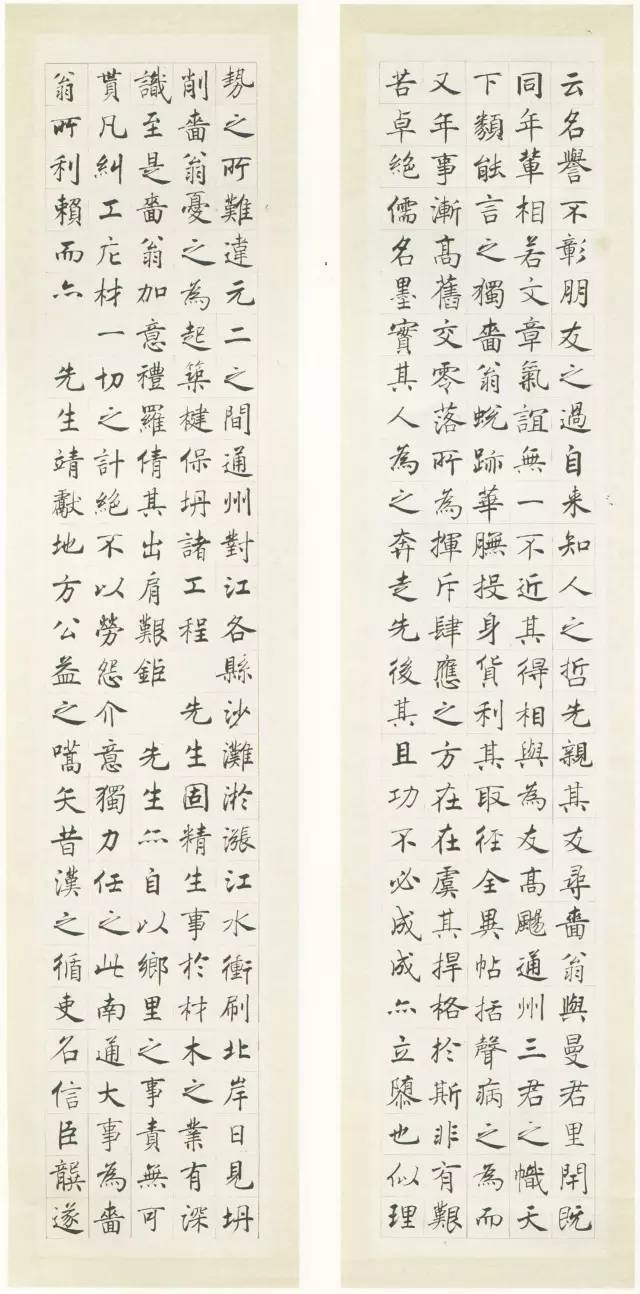 云名譽不彰朋友之過自来知人之哲先親其友尋嗇翁與曼君里閈既
同年輩相若文章氣誼無一不近其得相與為友髙颺通州三君之幟天
下類能言之獨嗇翁蛻跡華膴投身貨利其取徑全異帖括聲病之為而
又年事漸髙舊交零落所為揮斥肆應之方在在虞其捍格於斯非有艱
苦卓絶儒名墨實其人為之奔走先後其且功不必成成亦立隳也似理
勢之所難違元二之間通州對江各縣沙灘淤漲江水衝刷北岸日見坍
削嗇翁憂之為起築楗保坍諸工程 先生固精生事於材木之業有深
識至是嗇翁加意禮羅倩其出肩艱鉅 先生亦自以鄉里之事責無可
貰凡糾工庀材一切之計絶不以勞怨介意獨力任之此南通大事為嗇
翁所利賴而亦 先生靖獻地方公益之嚆矢昔漢之循吏名信臣龔遂